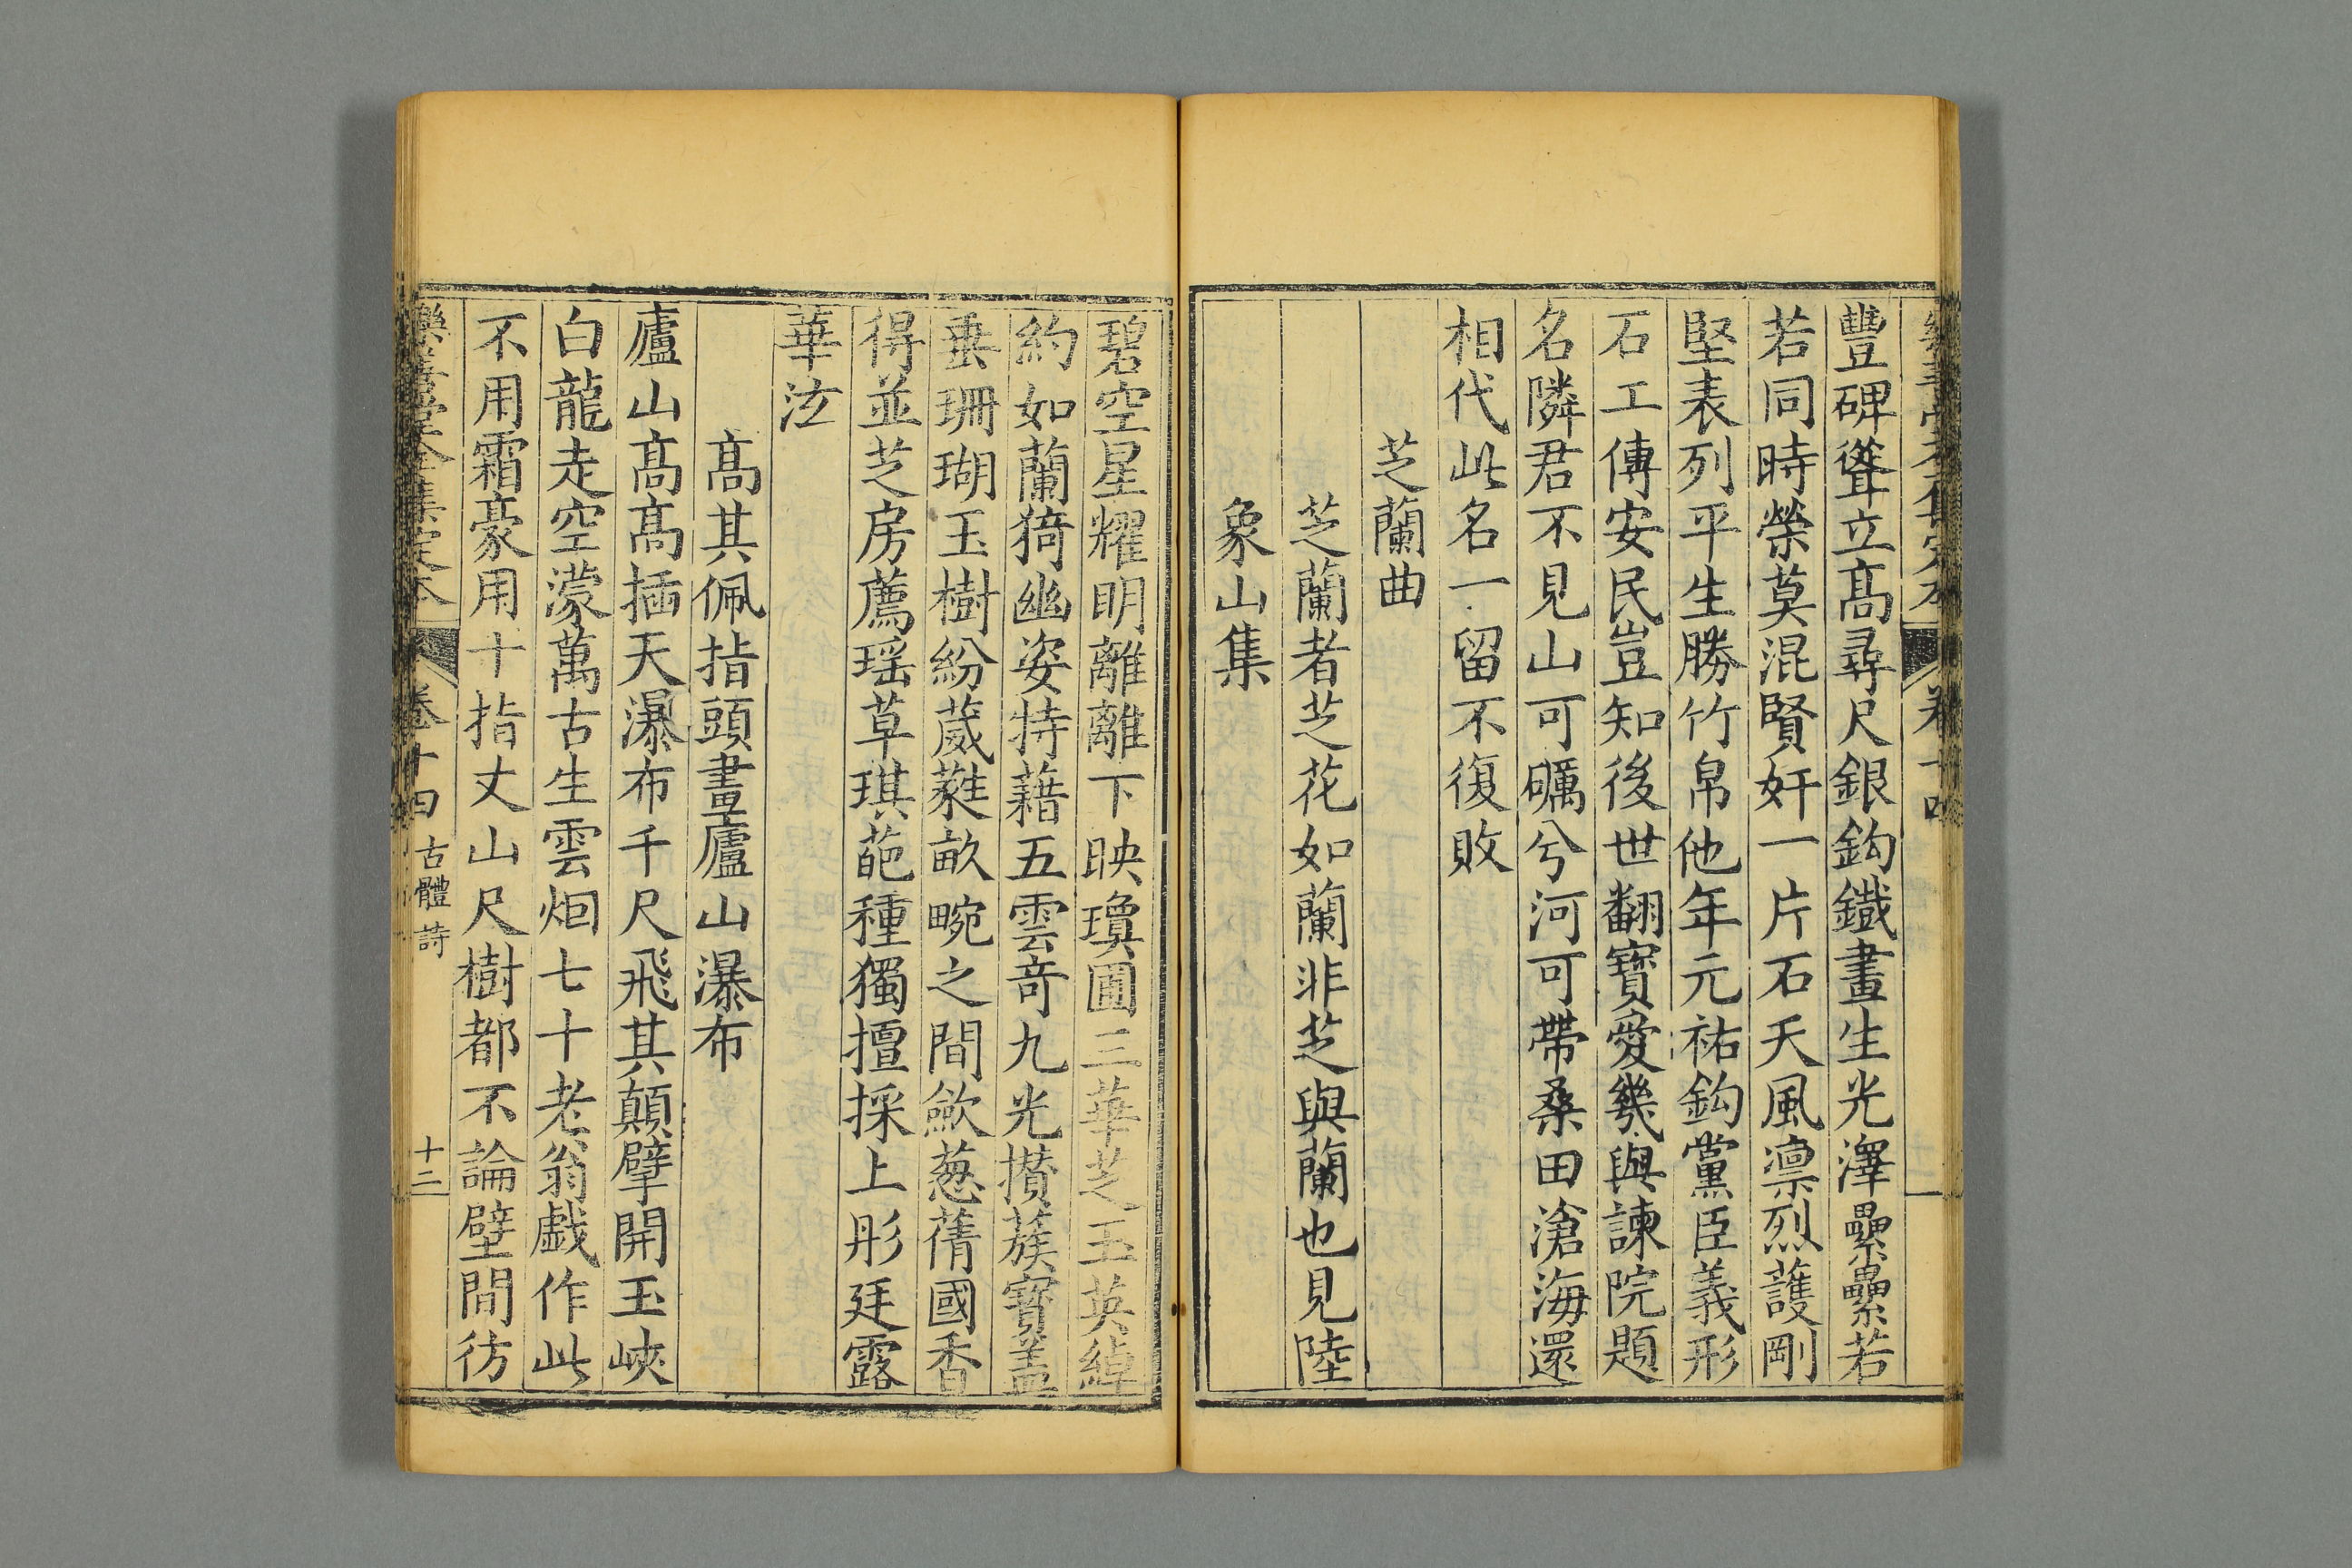 豐碑聳立髙尋尺銀鈎鐵畫生光澤纍纍若
若同時榮莫混賢奸一片石天風凛烈護剛
堅表列平生勝竹帛他年元祐鈎黨臣義形
石工傳安民豈知後世翻寳愛幾與諫院題
名隣君不見山可礪兮河可帶桑田滄海還
相代此名一留不復敗
芝蘭曲
芝蘭者芝花如蘭非芝與蘭也見陸
象山集
碧空星耀明離離下映瓊圃三華芝玉英綽
約如蘭猗幽姿特藉五雲竒九光攢蔟寳盖
垂珊瑚玉樹紛葳蕤畝畹之間歛葱蒨國香
得並芝房薦瑶草琪葩種獨擅採上彤廷露
華泫
髙其佩指頭畫廬山瀑布
廬山髙髙插天瀑布千尺飛其顛擘開玉峽
白龍走空濛萬古生雲烟七十老翁戯作此
不用霜豪用十指丈山尺樹都不論壁間彷
樂善堂全集定本 卷十四 古體詩 十二